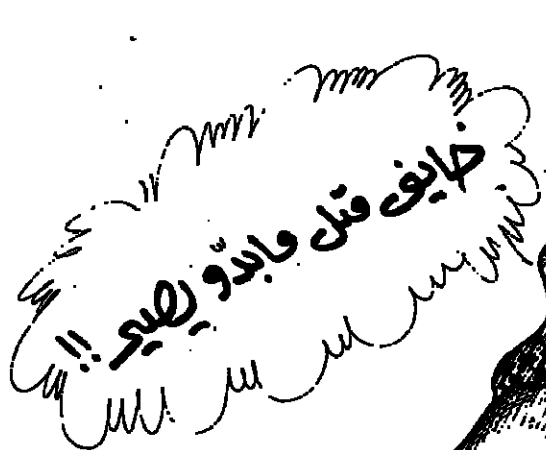 خايف قتل مابدّو يصير !!